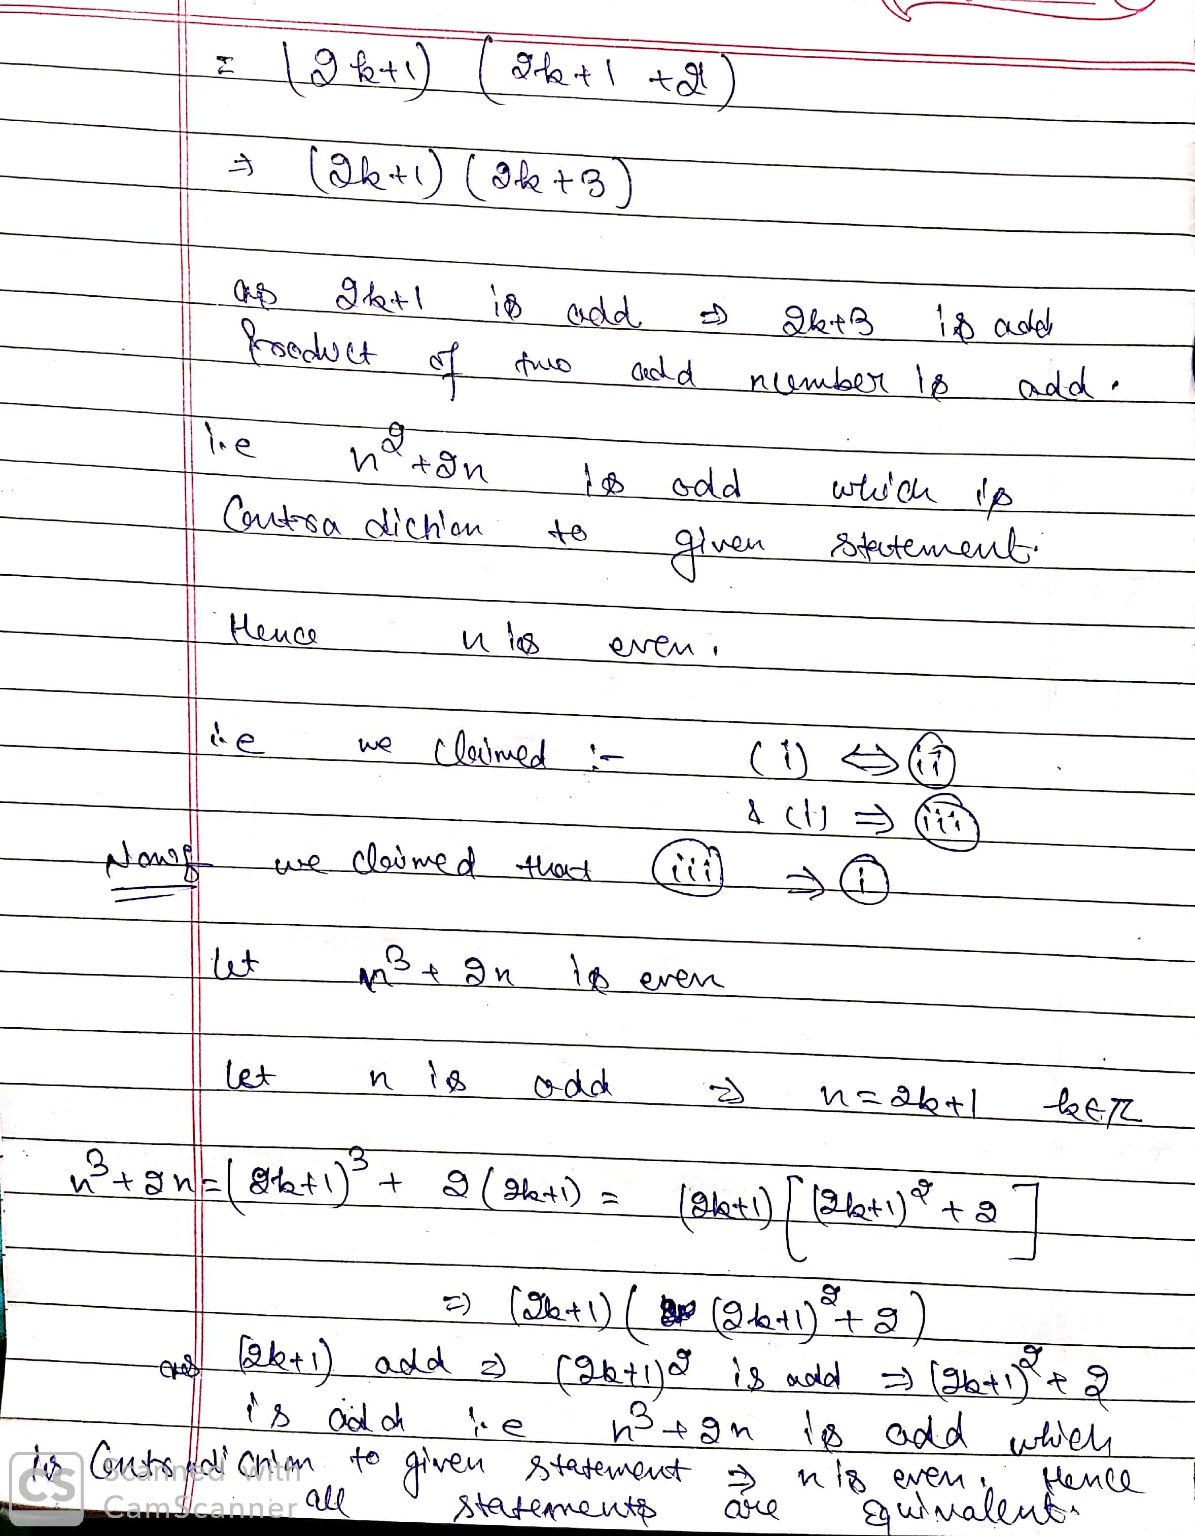 = (2k+1) (2k+1 +2)
⇒ (2k+1) (2k+3)
as 2k+1 is odd ⇒ 2k+3 is odd
Product of two odd number is odd.
i.e n²+2n is odd which is
Contradiction to given statement.
Hence n is even.
i.e we claimed :- (i) ⇔ (ii)
& (i) ⇒ (iii)
Now, we claimed that (iii) ⇒ (i)
let n³ + 2n is even
let n is odd ⇒ n = 2k+1 k∈Z
n³ + 2n = (2k+1)³ + 2(2k+1) = (2k+1) [(2k+1)² + 2]
⇒ (2k+1) ( (2k+1)² + 2)
as (2k+1) odd ⇒ (2k+1)² is odd ⇒ (2k+1)² + 2
is odd i.e n³ + 2n is odd which
is Contradiction to given statement ⇒ n is even. Hence
all statements are equivalent.
CS Scanned with
CamScanner